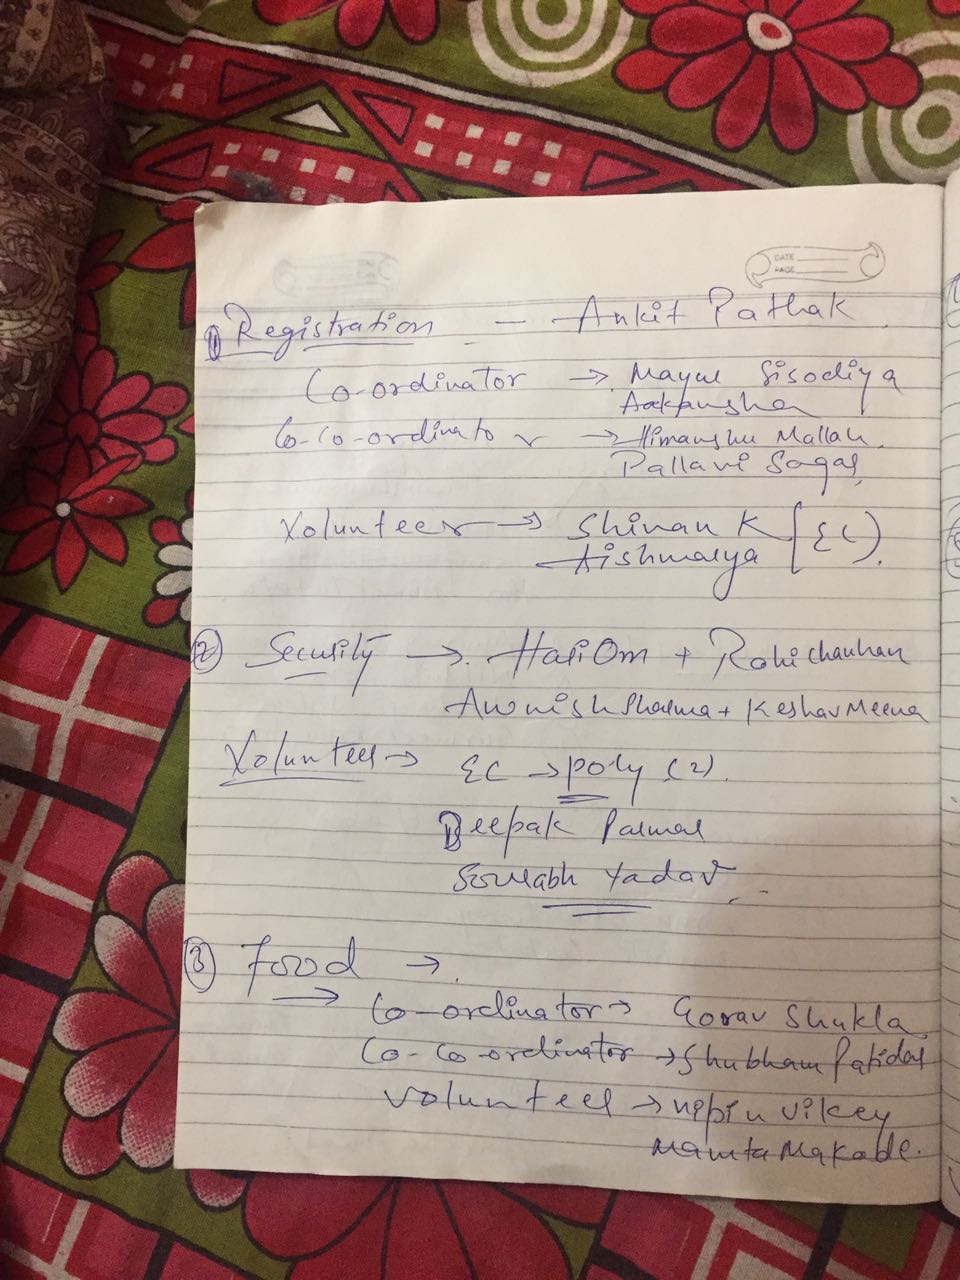 DATE
PAGE
① Registration - Ankit Pathak
Co-ordinator → Mayur Sisodiya
Aakansha
Co-Co-ordinator → Himanshu Mallah
Pallavi Sagar
Volunteer → Shivank
Aishwarya [EC).
② Security → HariOm + Rohi chauhan
Awnish Sharma + Keshav Meena
Volunteer → EC → poly (2).
Deepak Parmar
Sourabh Yadav
③ Food →
→ Co-ordinator → Gorav Shukla
Co-Co-ordinator → Shubham Patidar
Volunteer → vipin vikey
Mamta Makade.